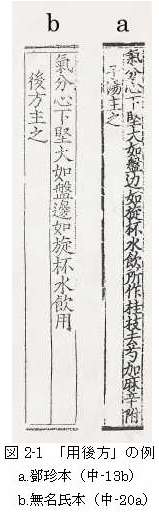 a
氣分心下堅大如盤边如旋杯水飲所作桂枝去芍加麻辛附
子湯主之
b
氣分心下堅大如盤邊如旋杯水飲用
後方主之
図 2-1　「用後方」の例
a.鄧珍本（中-13b）
b.無名氏本（中-20a）